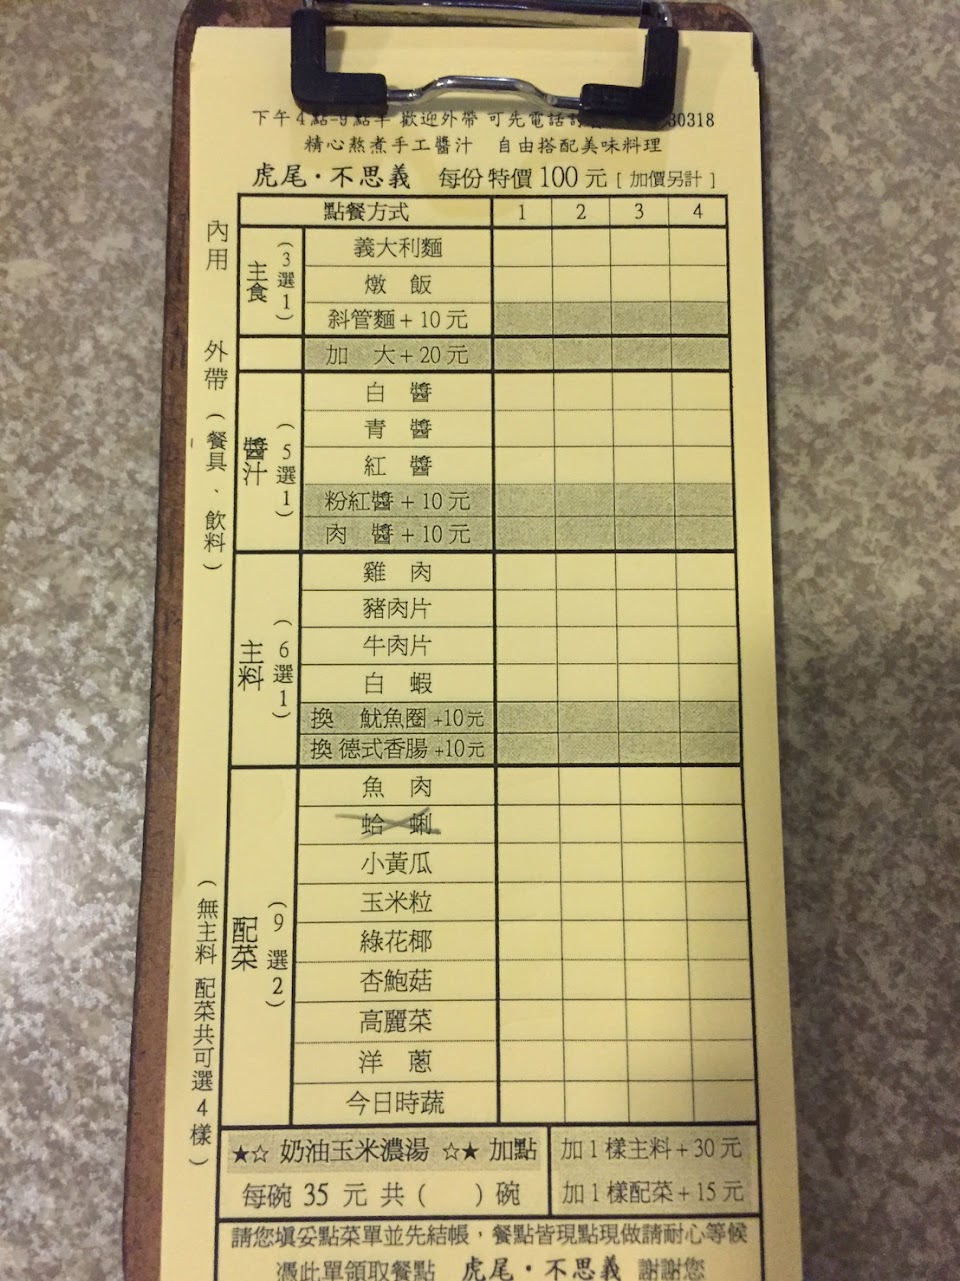 下午4點-9點半 歡迎外帶 可先電話訂 30318
精心熬煮手工醬汁 自由搭配美味料理
虎尾・不思義 每份特價100元 [加價另計]
點餐方式 1 2 3 4
內用
外帶(餐具、飲料)
(無主料 配菜共可選4樣)
主食(3選1)
義大利麵
燉 飯
斜管麵+10元
加 大+20元
醬汁(5選1)
白 醬
青 醬
紅 醬
粉紅醬+10元
肉 醬+10元
主料(6選1)
雞 肉
豬肉片
牛肉片
白 蝦
換 魷魚圈+10元
換 德式香腸+10元
配菜(9選2)
魚 肉
蛤 蜊
小黃瓜
玉米粒
綠花椰
杏鮑菇
高麗菜
洋 蔥
今日時蔬
★☆ 奶油玉米濃湯 ☆★ 加點
每碗 35 元 共( )碗
加1樣主料+30元
加1樣配菜+15元
請您填妥點菜單並先結帳,餐點皆現點現做請耐心等候
憑此單領取餐點 虎尾・不思義 謝謝您